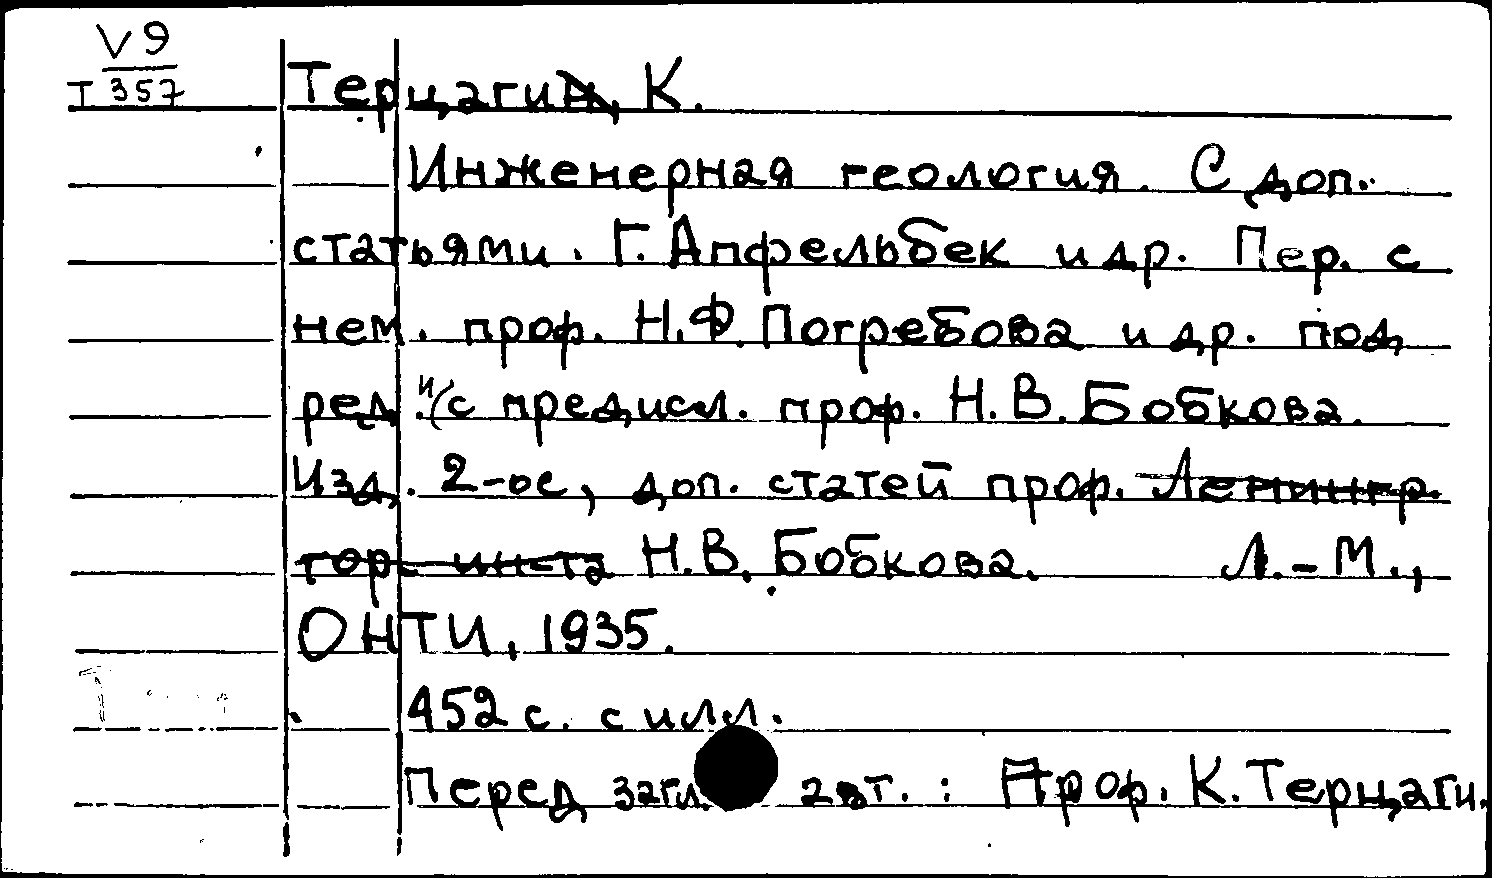 V 9
Т 357
Терцаги, К.
Инженерная геология. С доп.
статьями. Г. Апфельбек и др. Пер. с
нем. проф. Н.Ф. Погребова и др. под
ред. и с предисл. проф. Н. В. Бобкова.
Изд. 2-ое, доп. статей проф. Ленингр.
гор. ин-та Н.В. Бобкова. Л.-М.,
ОНТИ, 1935.
452 с. с илл.
Перед загл. авт.: Проф. К. Терцаги.